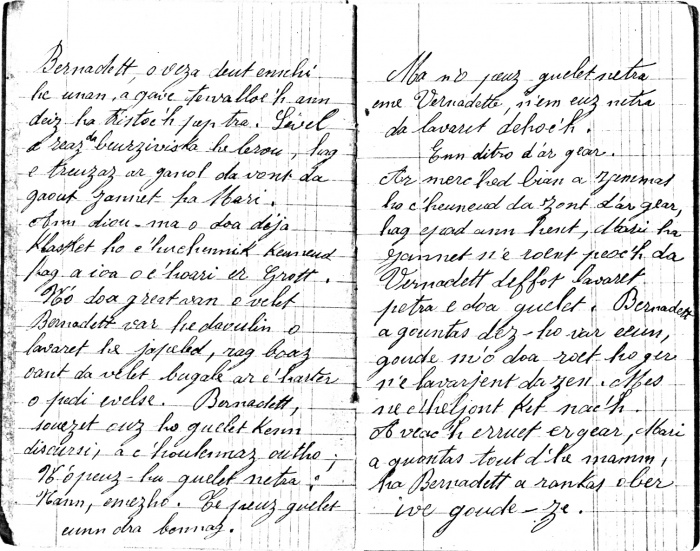 Bernadett, o veza deut enn-hi
he unan, a gave tevalloc'h ann
deiz ha tristoc'h pep tra. Lével
a reaz da beurziviska he lerou, hag
e treuzaz ar ganol da vont da
gaout Jannet ha Mari.
Ann diou-ma o doa déja
klasket ho c'huchennik keuneud
hag a ioa o c'hoari er Grott.
N'ó doa great van o velet
Bernadett var he daoulin o
lavaret he japeled, rag boaz
oant da velet bugale ar c'harter
o pedi evelse. Bernadett,
souezet ouz ho guelet kenn
discursi, a c'houlennaz outho;
N'ópeuz-hu guelet netra?
Nann, emezho. Te peuz guelet
eunn dra bennaz.
Ma n'o peuz guelet netra
eme Vernadette, n'em euz netra
da lavaret dehoc'h.
Enn distro d'ar gear.
Ar merc'hed bian a zammas
ho c'heuneud da zont d'ar gear,
hag epad ann hent, Mari ha
Jannet n'e roent peoc'h da
Vernadett deffot lavaret
petra e doa guelet. Bernadett
a gountas dez-ho var eeun,
goude m'o doa roet ho ger
n'e lavarjent da zen. Mes
ne c'heljont ket nac'h.
A veac'h erruet er gear, Mari
a gountas tout d'he mamm,
ha Bernadett a rankas ober
ive goude-ze.